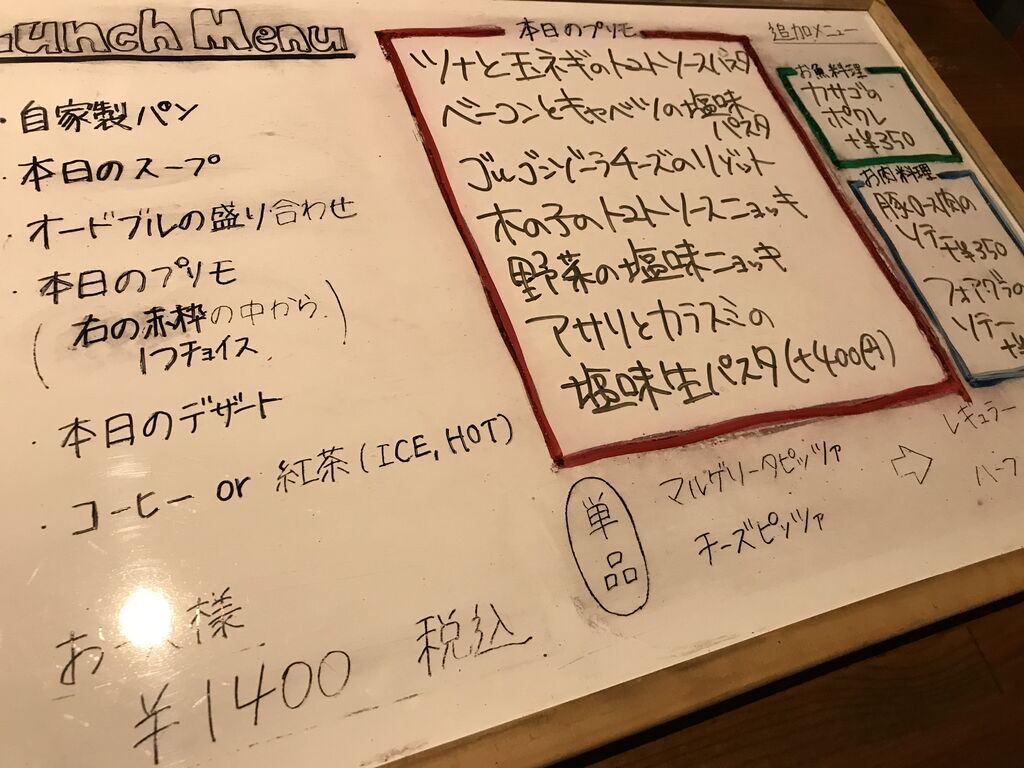 Lunch Menu
・自家製パン
・本日のスープ
・オードブルの盛り合わせ
・本日のプリモ
(右の赤枠の中から
1つチョイス)
・本日のデザート
・コーヒー or 紅茶(ICE, HOT)
お一人様
¥1400 税込
本日のプリモ
ツナと玉ネギのトマトソースパスタ
ベーコンとキャベツの塩味
パスタ
ゴルゴンゾーラチーズのリゾット
木の子のトマトソースニョッキ
野菜の塩味ニョッキ
アサリとカラスミの
塩味生パスタ(+400円)
追加メニュー
お魚料理
カサゴの
ポワレ
+¥350
お肉料理
豚ロース肉の
ソテー+¥350
フォアグラの
ソテー
+¥
単品
マルゲリータピッツァ
チーズピッツァ
⇨
レギュラー
ハーフ